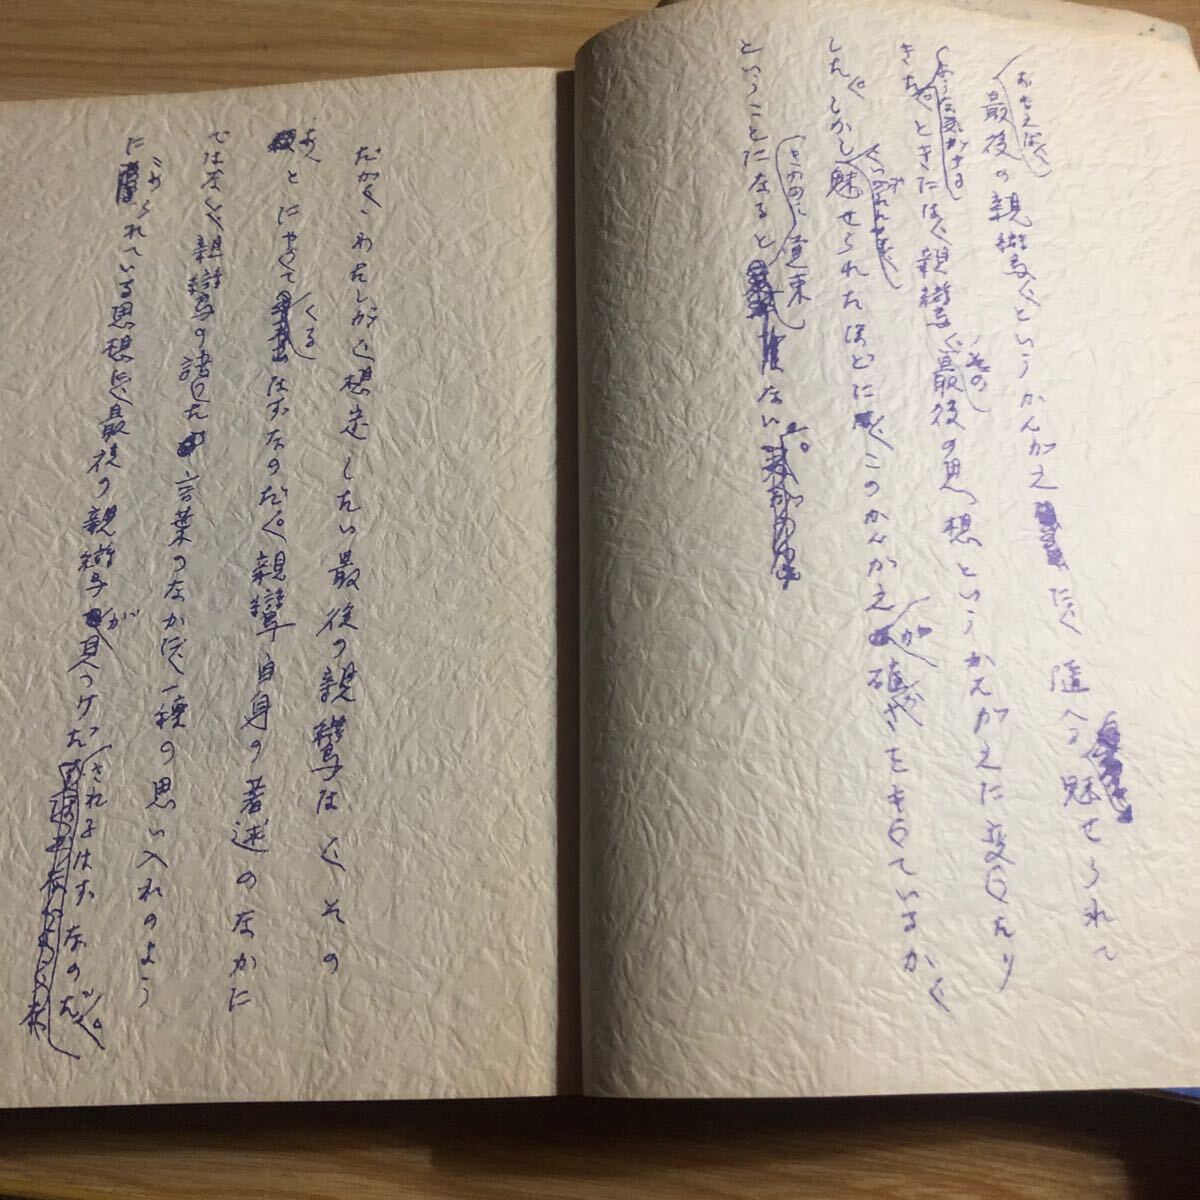 おもえば、
最後の親鸞、というかんがえに、随分魅せられて
ような気がする
きた。ときには、親鸞、その最後の思想というかんがえに変ったり
した。しかし魅せられたほどに、このかんがえが確かさをもっているか、
ということになると覚束ない。
だが、わたしが、想定したい最後の親鸞は、その
あとにやってくるはずなのだ。親鸞自身の著述のなかに
ではなく、親鸞の語った言葉のなかに、一種の思い入れのよう
にこめられている思想に、最後の親鸞が見つけだされるはずなのだ。